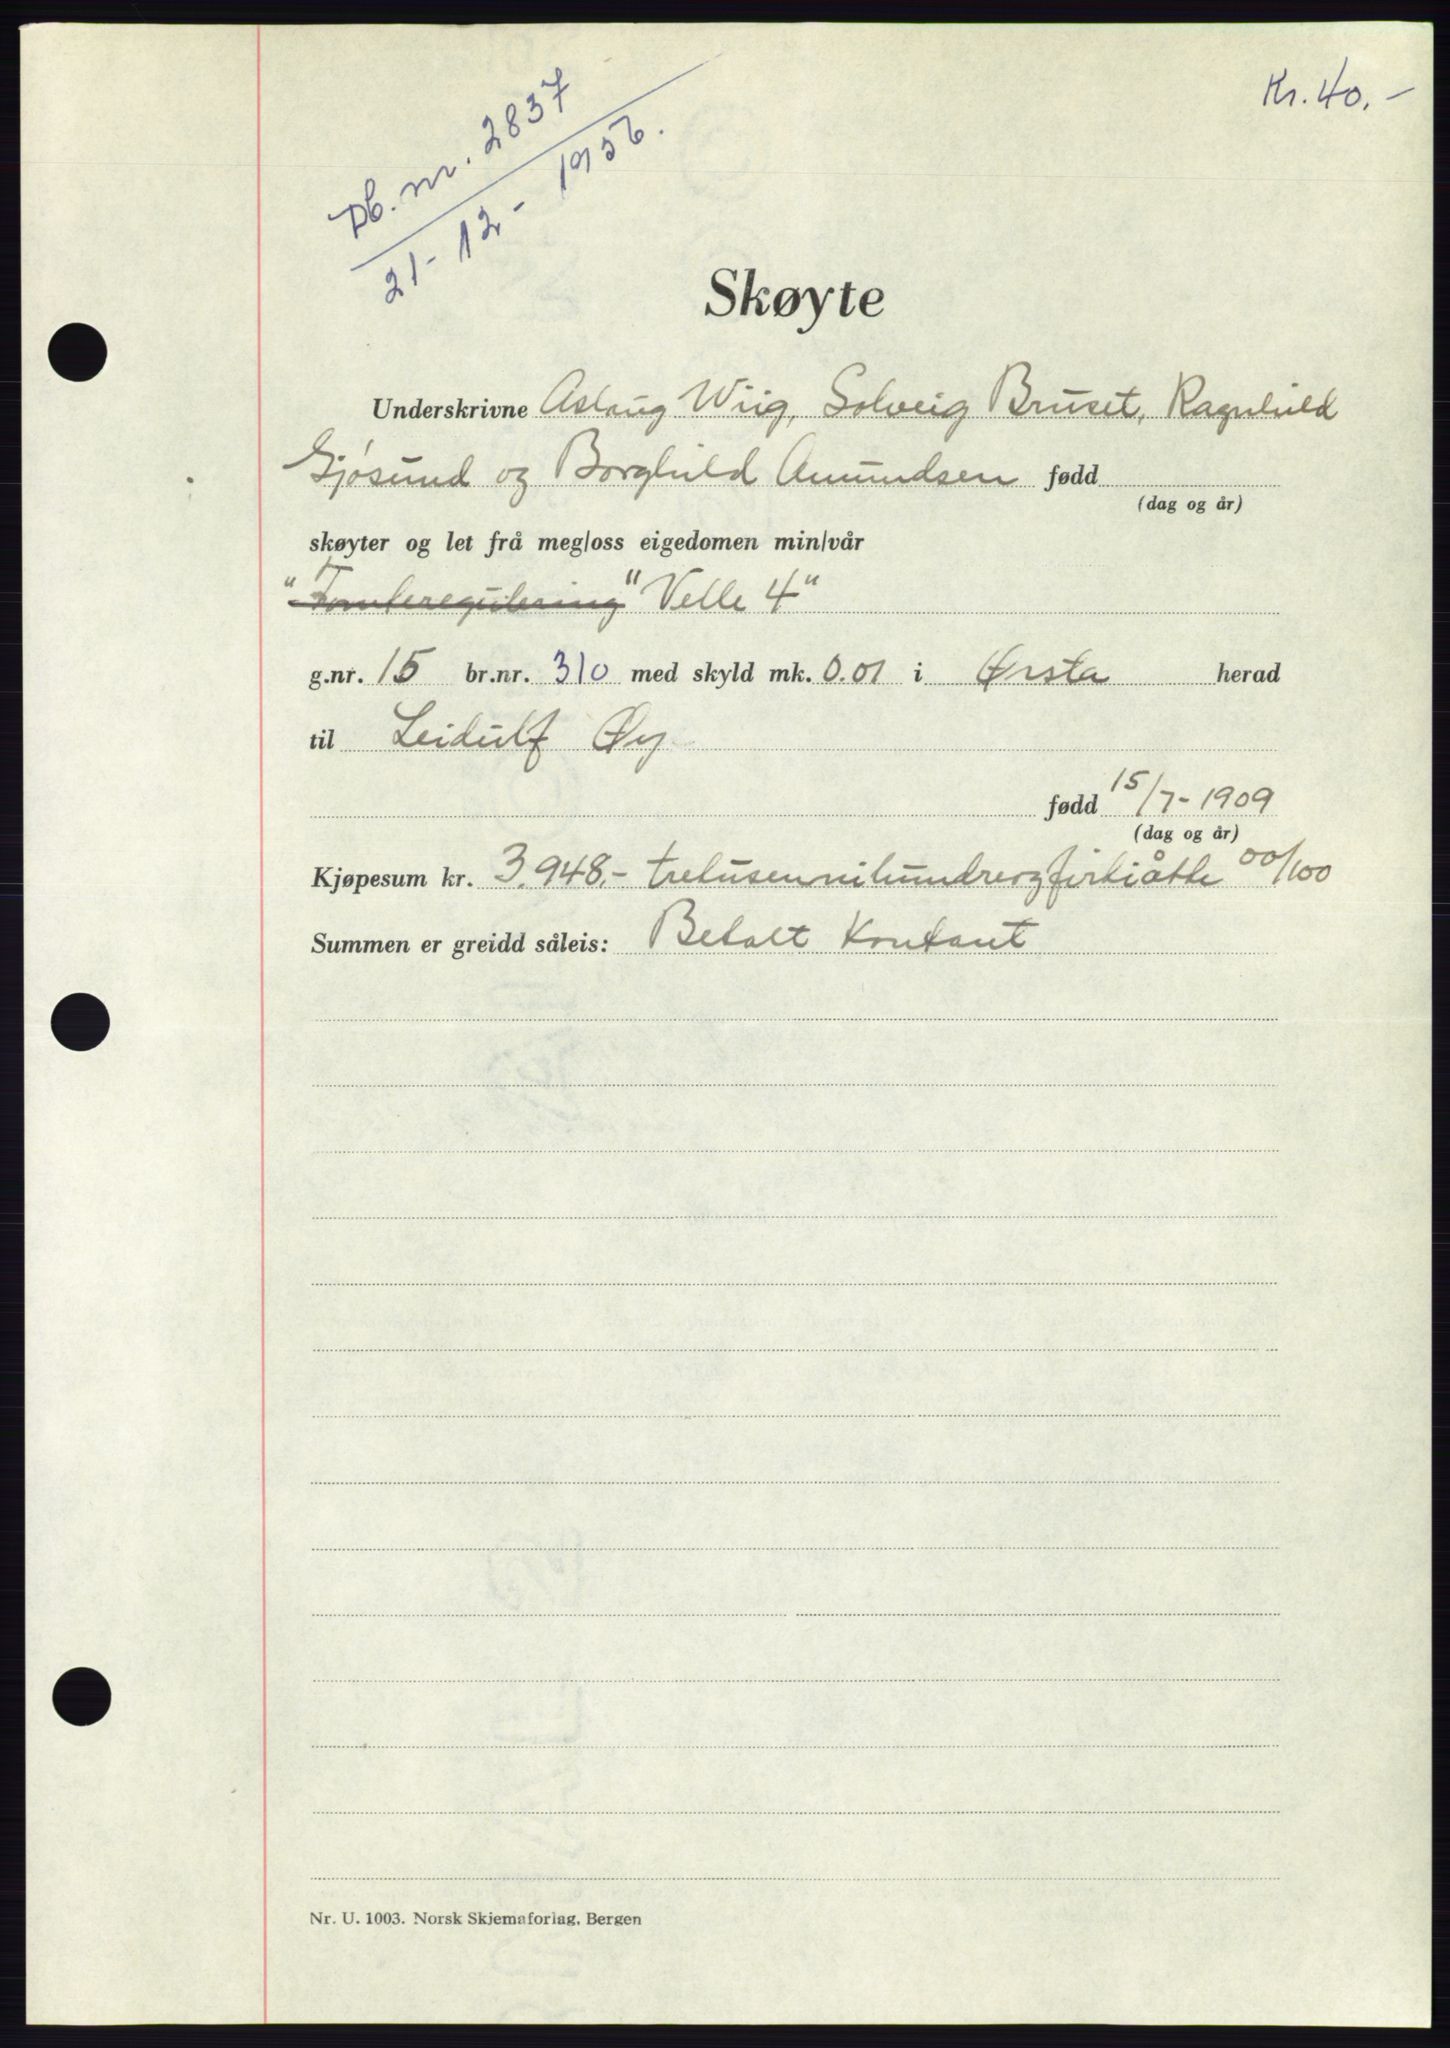 Kr. 40.-
Db. nr. 2837
21-12-1956.
Skøyte
Underskrivne Aslaug Wiig, Solveig Bruset, Ragnhild
Gjøsund og Borghild Amundsen fødd
(dag og år)
skøyter og let frå meg/oss eigedomen min/vår
"Tomteregulering" Velle 4"
g.nr. 15 br.nr. 310 med skyld mk. 0.01 i Ørsta herad
til Leidulf Øy
fødd 15/7-1909
(dag og år)
Kjøpesum kr. 3.948,- tretusennihundreogførtiåtte 00/100
Summen er greidd såleis: Betalt kontant
Nr. U. 1003. Norsk Skjemaforlag, Bergen